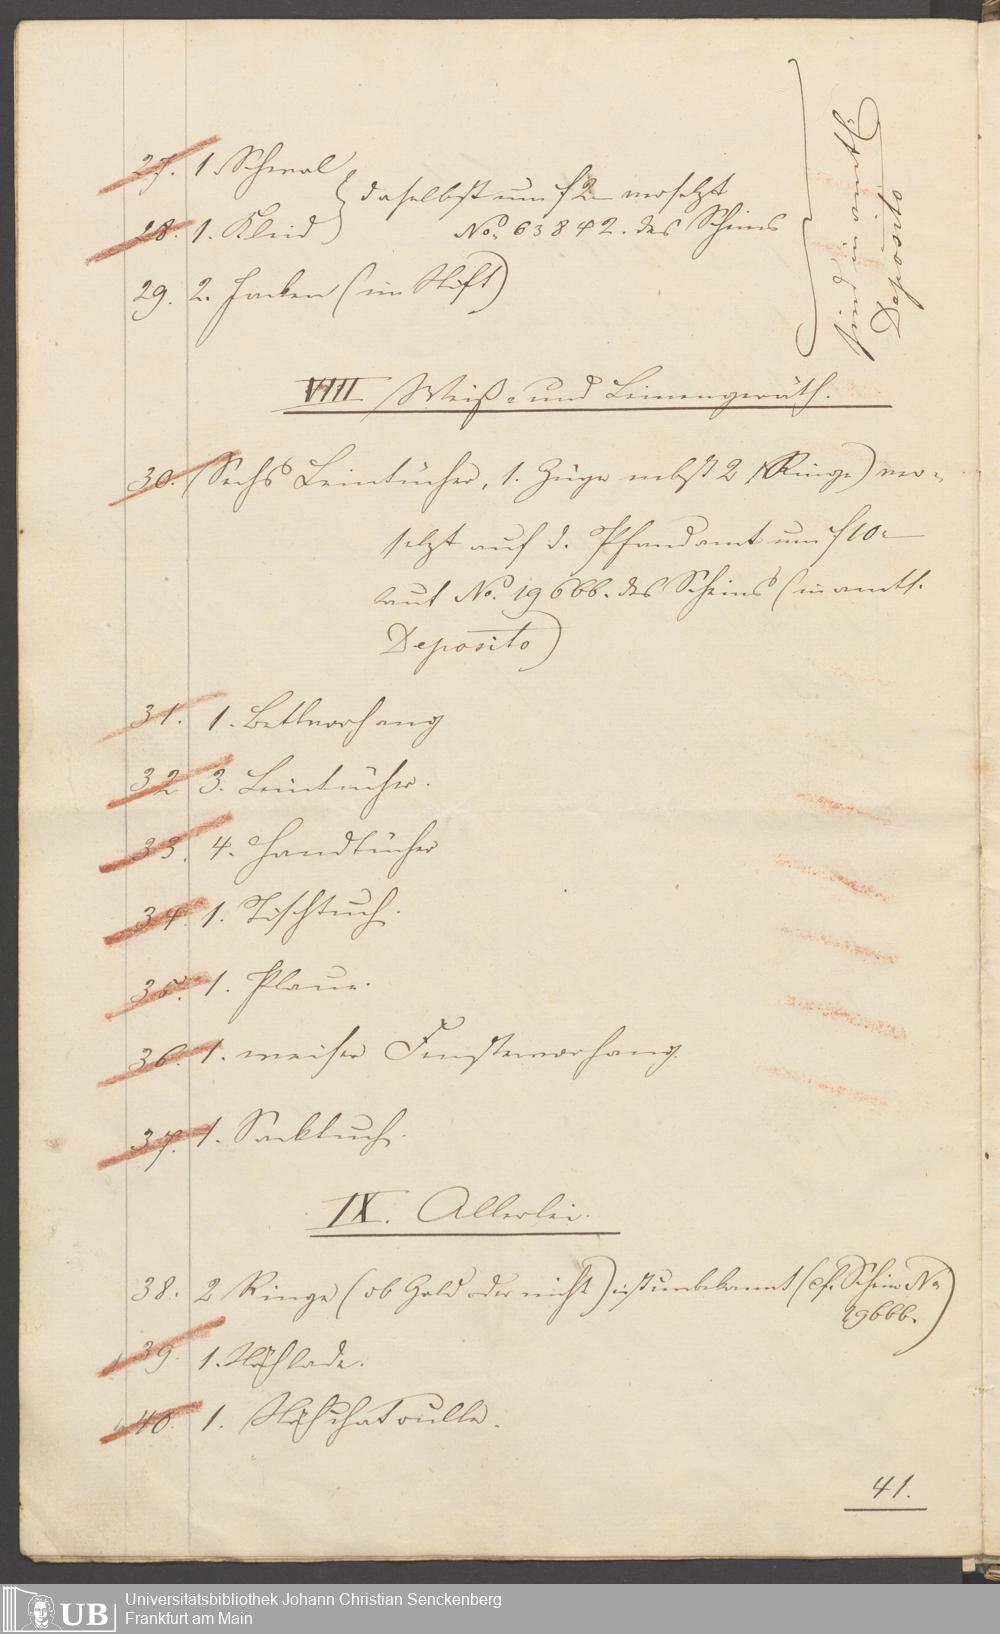 27. 1. Schwal
} daselbst um f 2 versetzt
28. 1. Kleid No. 63842. des Scheins
29. 2. Jacken (im Stift)
sind in amtl.
Deposito
VIII Weiß- und Leinengeräth.
30. (Sechs Leintücher, 1. Züge nebst 2 Ringe) ver-
setzt auf d. Pfandamt um f 10.
laut No. 19666. des Scheins (in amtl.
Deposito)
31. 1. Bettvorhang
32 3. Leintücher.
33. 4. Handtücher
34. 1. Tischtuch.
35. 1.
36. 1. weiser Fenstervorhang.
37. 1. Sacktuch.
IX. Allerlei.
38. 2 Ringe (ob Gold oder nicht) ist unbekannt (cf. Schein No
19666.)
39. 1. Nählade.
40. 1. Nähschatoulle.
41.
Universitätsbibliothek Johann Christian Senckenberg
Frankfurt am Main
UB